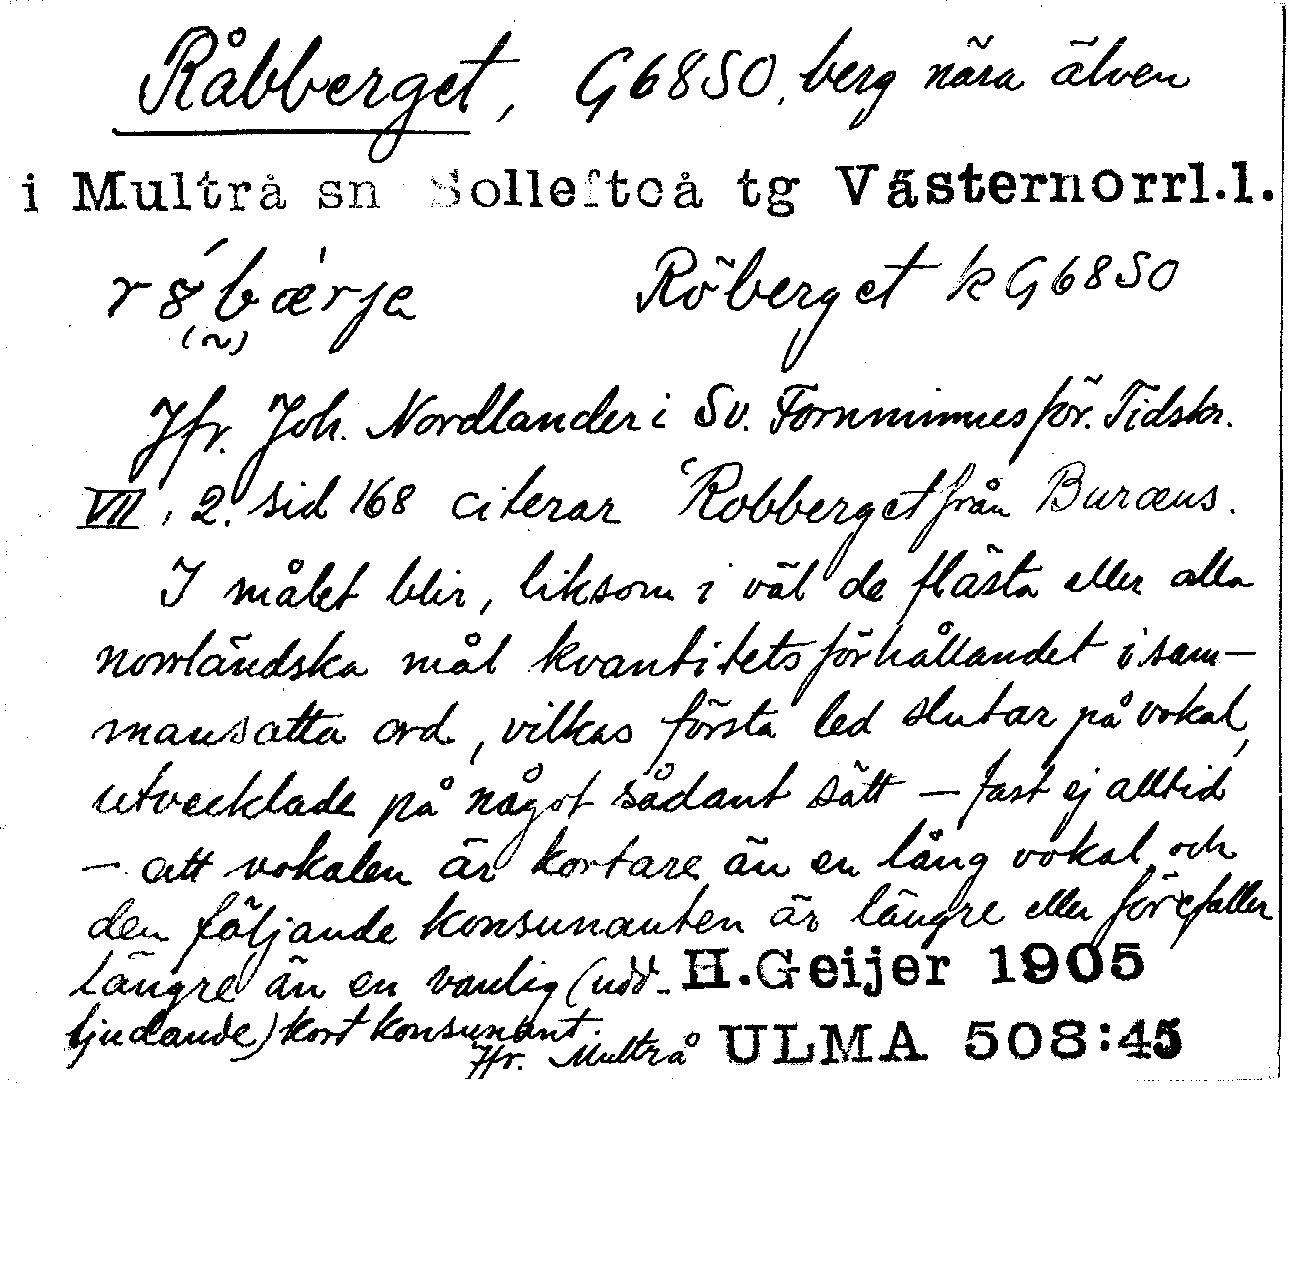 Råbberget, G68SO, berg nära älven
i Multrå sn Sollefteå tg Västernorrl.l.
Röberget k G68SO
(~)
Jfr. Joh. Nordlander i Sv. Fornminnesför. Tidskr.
VII, 2. sid 168 citerar 'Robberget från Buræus.
I målet blir, liksom i väl de flästa eller alla
norrländska mål kvantitetsförhållandet i sam-
mansatta ord, vilkas första led slutar på vokal,
utvecklade på något sådant sätt – fast ej alltid
– att vokalen är kortare än en lång vokal och
den följande konsunanten är längre eller förefaller
längre än en vanlig (udd-
ljudande) kort konsunant.
Jfr. Multrå
H.Geijer 1905
ULMA 508:45